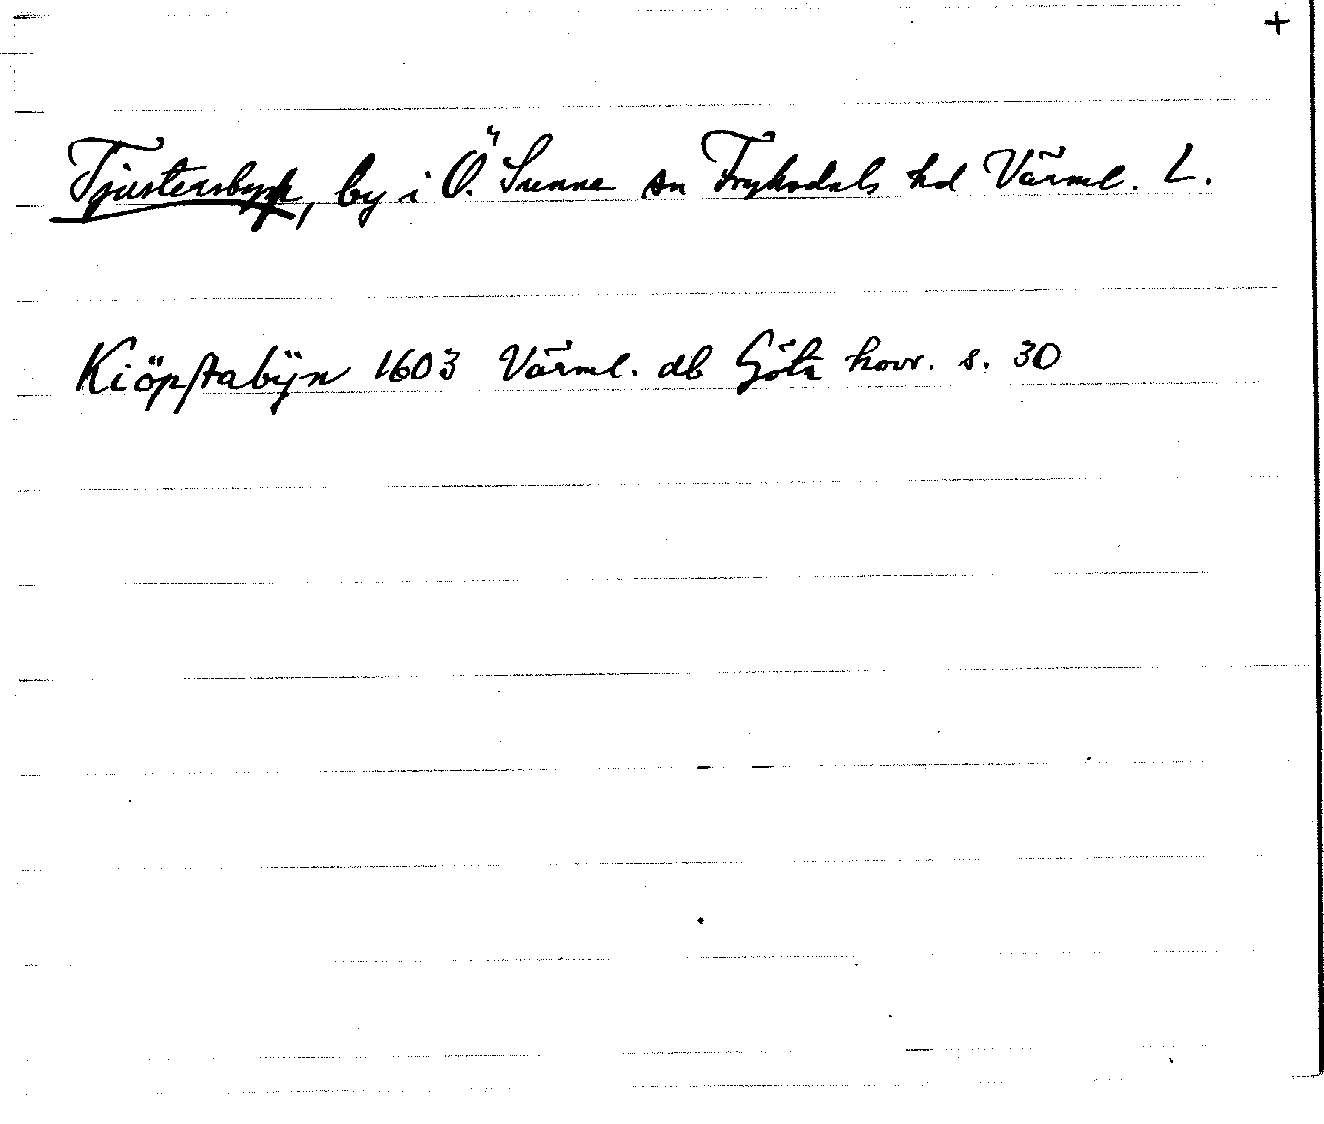 +
Tjustersbyn, by i Ö. Sunne sn Fryksdals hd Värml. L.
Kiöpstabÿn 1603 Värml. db Göta hovr. s. 30